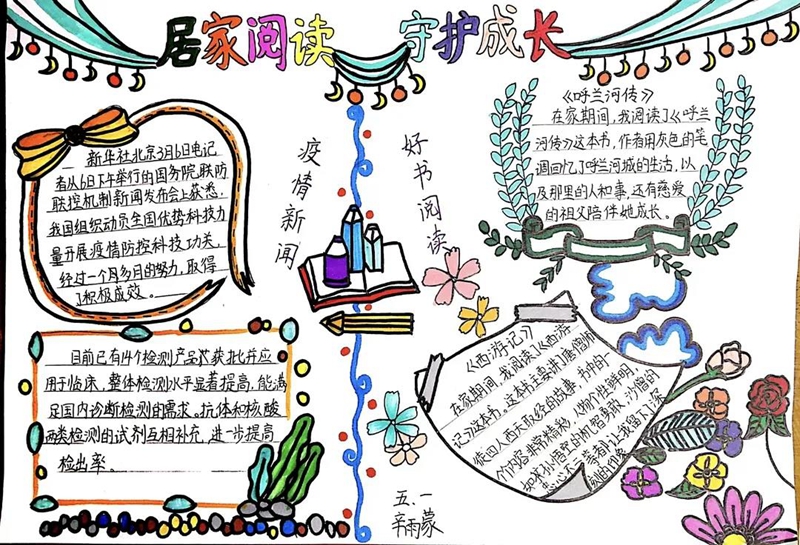 居家阅读 守护成长
疫情新闻
新华社北京3月6日电记
者从6日下午举行的国务院联防
联控机制新闻发布会上获悉,
我国组织动员全国优势科技力
量开展疫情防控科技功关,
经过一个月多月的努力,取得
了积极成效。
目前已有14个检测产品获批并应
用于临床,整体检测水平显著提高,能满
足国内诊断检测的需求。抗体和核酸
两类检测的试剂互相补充,进一步提高
检出率。
好书阅读
《呼兰河传》
在家期间,我阅读了《呼兰
河传》这本书,作者用灰色的笔
调回忆了呼兰河城的生活,以
及那里的人和事,还有慈爱
的祖父陪伴她成长。
《西游记》
在家期间,我阅读了《西游
记》这本书。这本书主要讲了唐僧师
徒四人西天取经的故事,书中的一
个内容非常精彩,人物个性鲜明,
如求孙悟空的机智勇敢,沙僧的
忠心不二等都让我留下了深
刻的印象
五.一
辛雨蒙